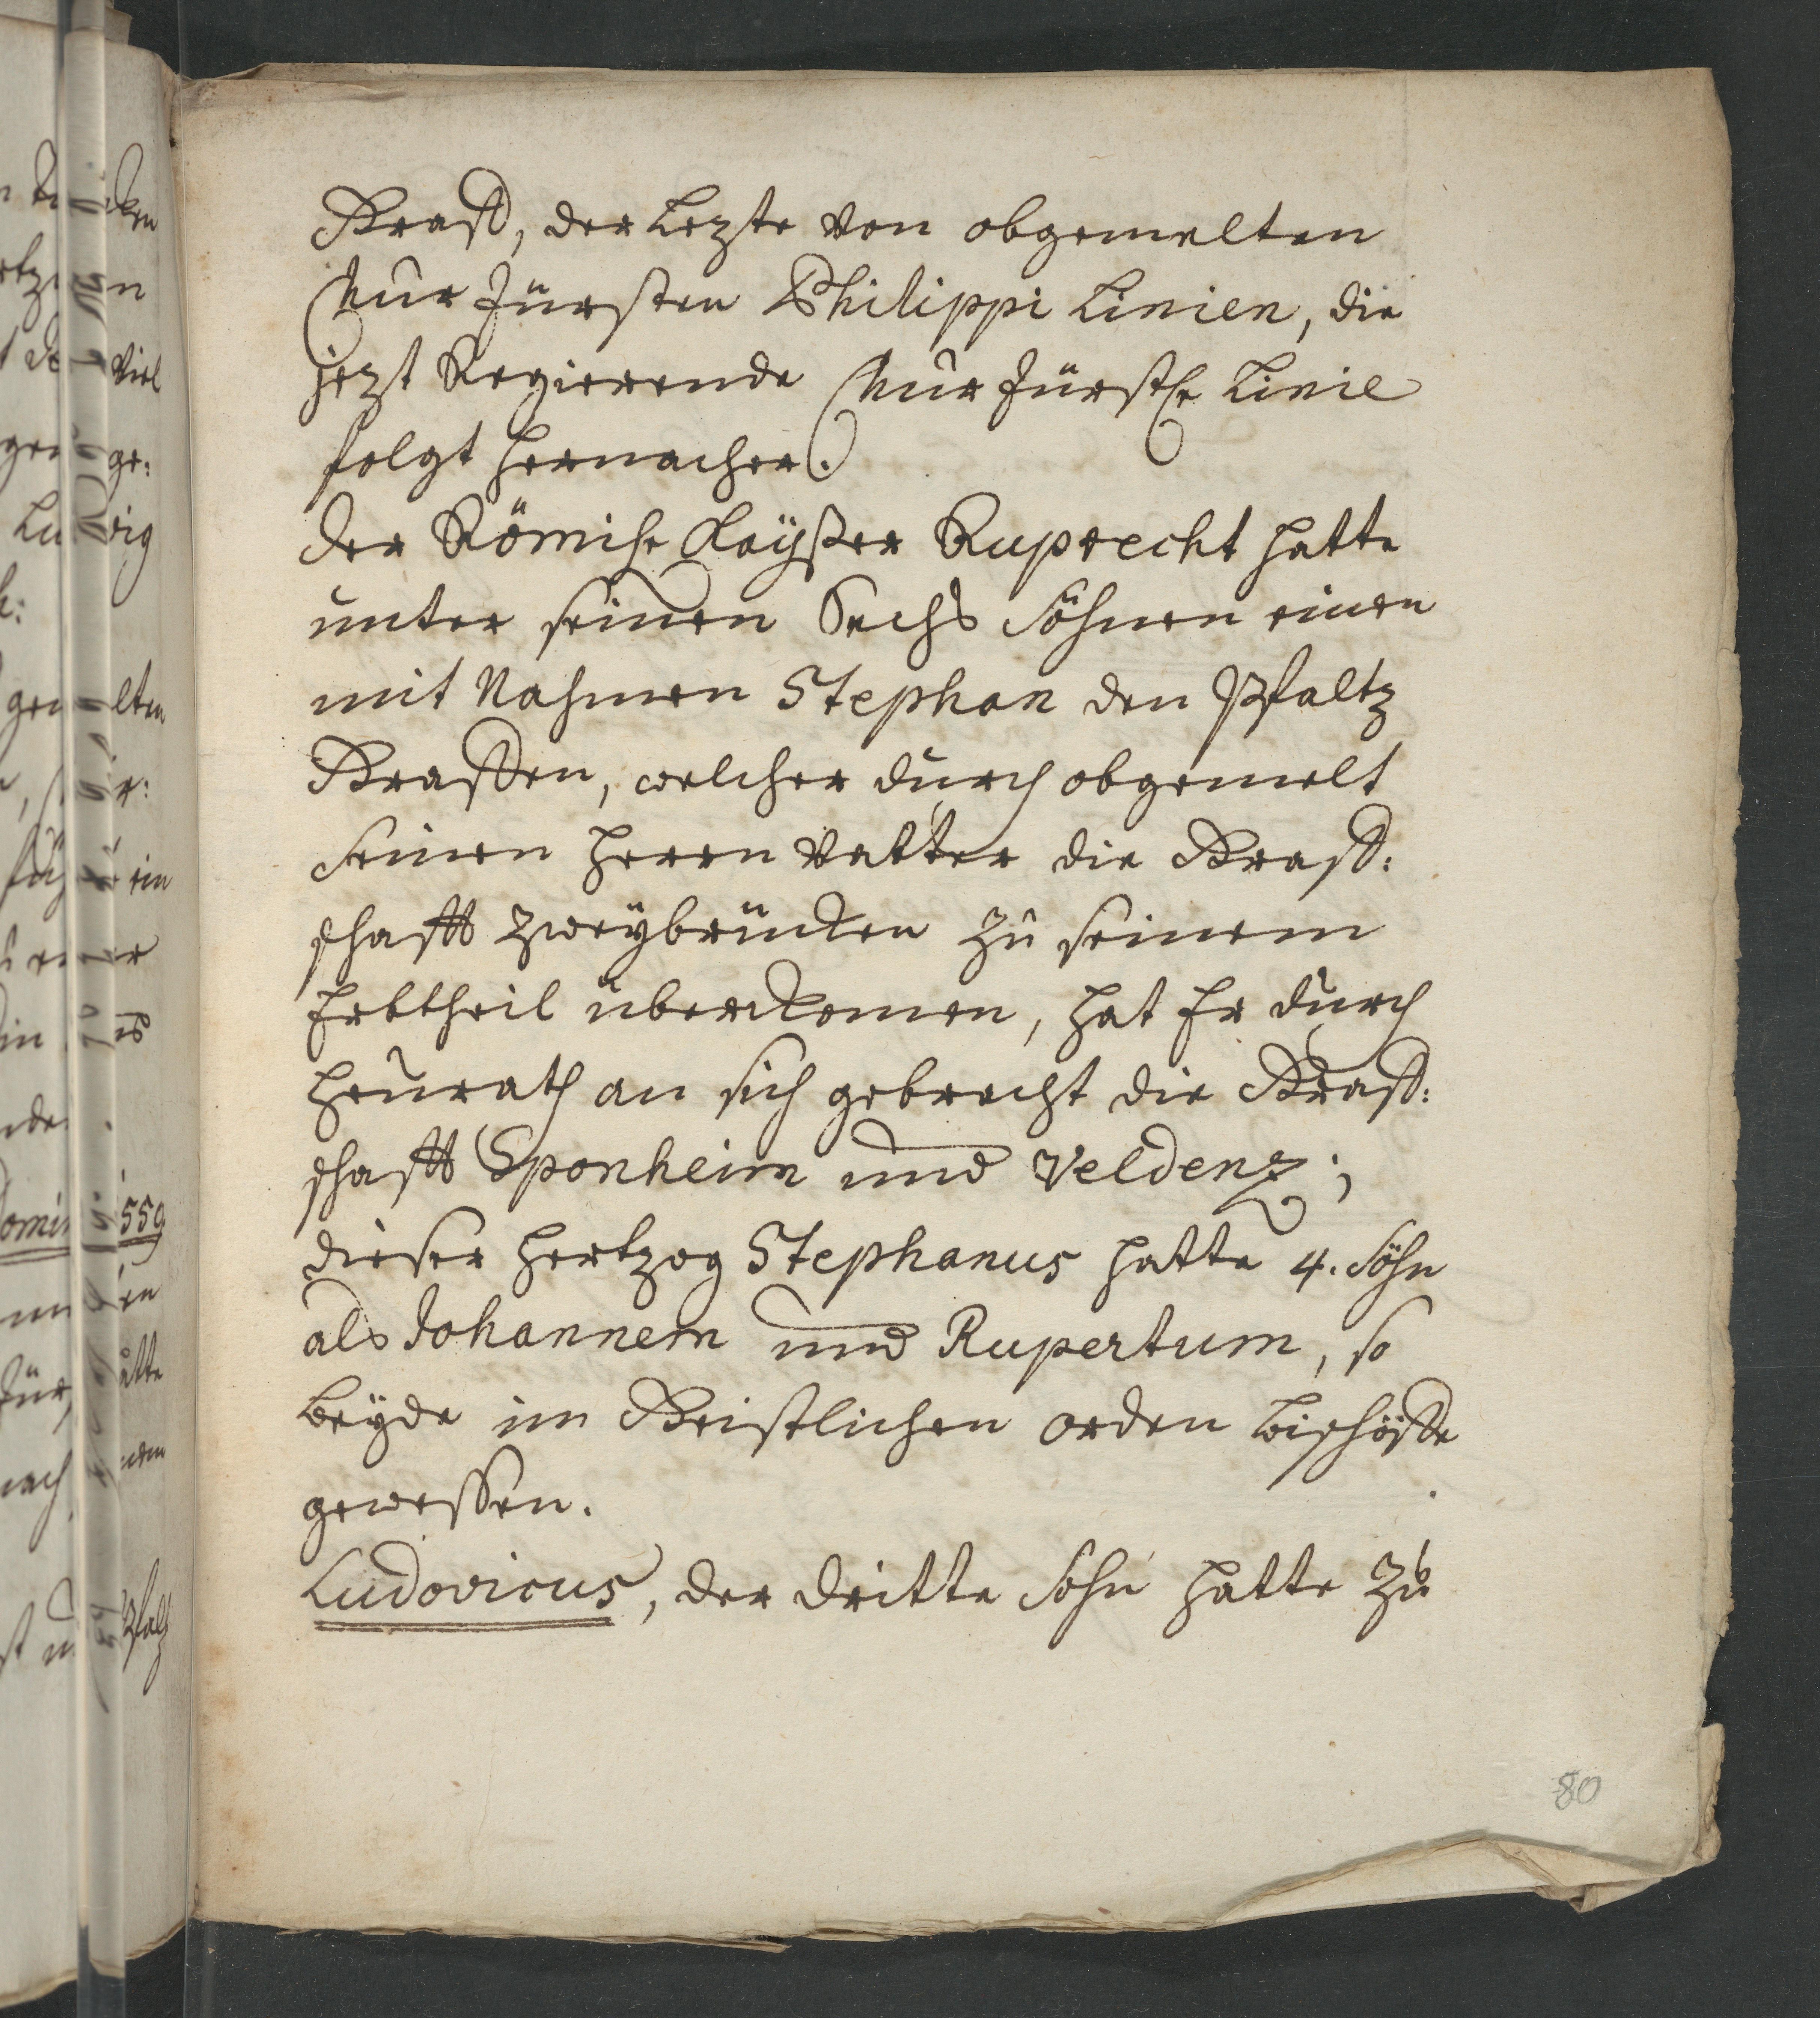 Graff, der Lezte von obgemelten
Chur Fürsten Philippi Linien, die
jezt Regierende Chur Fürstl. Linie
folgt hernacher.
Der Römische Kaÿßer Ruprecht hatte
unter seinen Sechs Söhnen einen
mit Nahmen Stephan den Pfaltz
Graffen, welcher durch obgemelt
seinen Herrn Vatter die Graff:
schafft Zweÿbrücken zu seinem
Erbtheil überkomen, hat Er durch
Heurath an sich gebracht die Graff:
schafft Sponheim und Veldenz;
dieser Hertzog Stephanus hatte 4. Söhn
als Johannem und Rupertum, so
beÿde im Geistlichen orden Bischöffe
gewessen.
Ludovicus, der dritte Sohn hatte zu
80